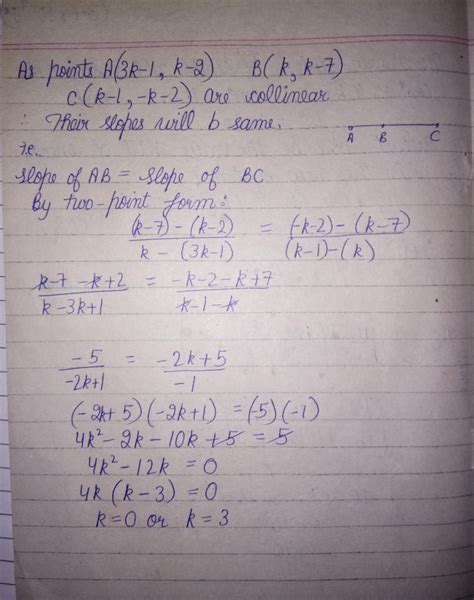 As points A(3k-1, k-2) B(k, k-7)
C(k-1, -k-2) are collinear
∴ Their slopes will b same.
A B C
i.e.
slope of AB = slope of BC
By two-point form:
(k-7) - (k-2) / k - (3k-1) = (-k-2) - (k-7) / (k-1) - (k)
k-7 -k+2 / k-3k+1 = -k-2-k+7 / k-1-k
-5 / -2k+1 = -2k+5 / -1
(-2k+5)(-2k+1) = (-5)(-1)
4k²-2k-10k+5 = 5
4k²-12k = 0
4k(k-3) = 0
k=0 or k=3